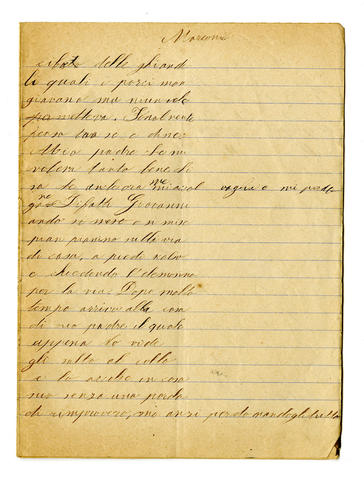 cibo delle ghiande
li quali i porci man
giavano ma niuno glie
permetteva. Finalmente
penso tra se e dice:
Mio padre
voleva tanto bene
se ancora vogera e mi perdo
ne Difatti Giovanni
ando si mise in
pian pianino nella via
di casa, a piedi nudi
e chiedendo l'elemosina
per la via. Dopo molto
tempo arrivo alla casa
di suo padre il quale
appena lo vide
gli salto al collo
e lo accolse in casa
sua senza una parola
di rimprovero, ma anzi perdonandogli tutto